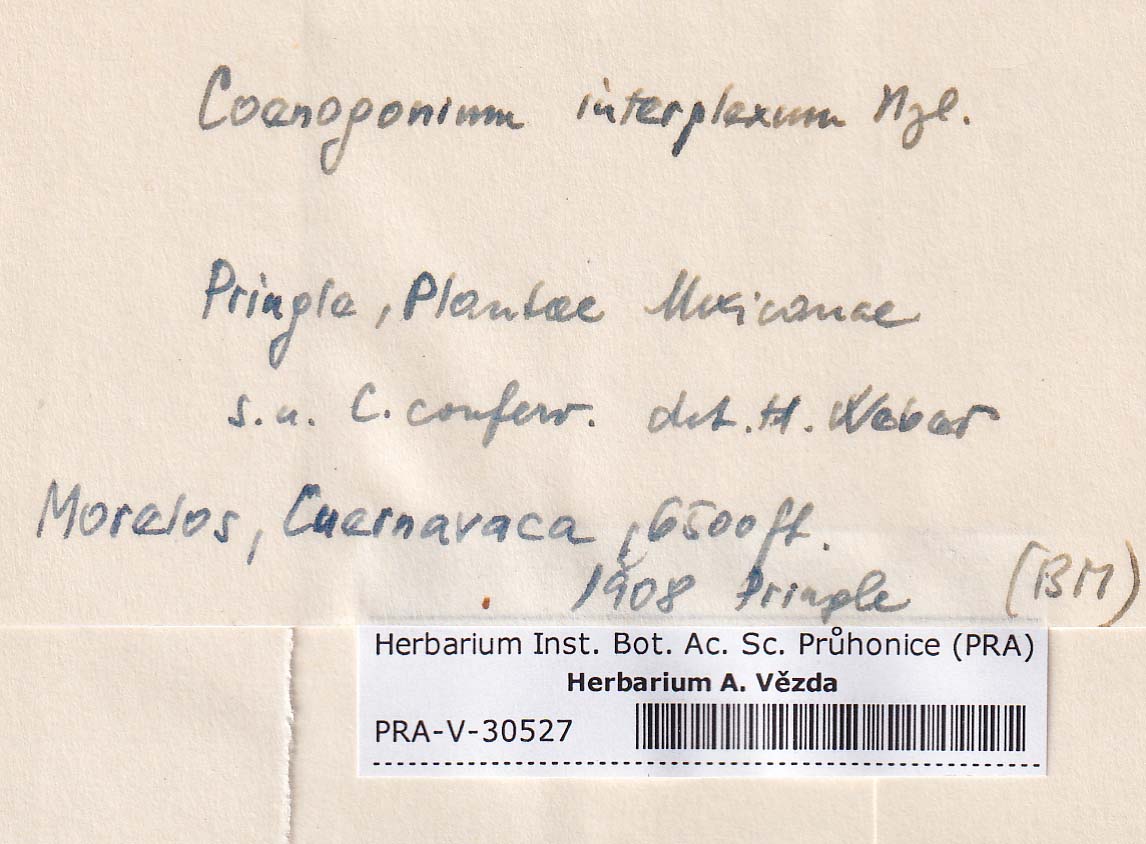 Coenogonium interplexum Nyl.
Pringle, Plantae Mexicanae
s.n. C. conferv. det. H. Weber
Morelos, Cuernavaca, 6500 ft.
1908 Pringle (BM)
Herbarium Inst. Bot. Ac. Sc. Průhonice (PRA)
Herbarium A. Vězda
PRA-V-30527